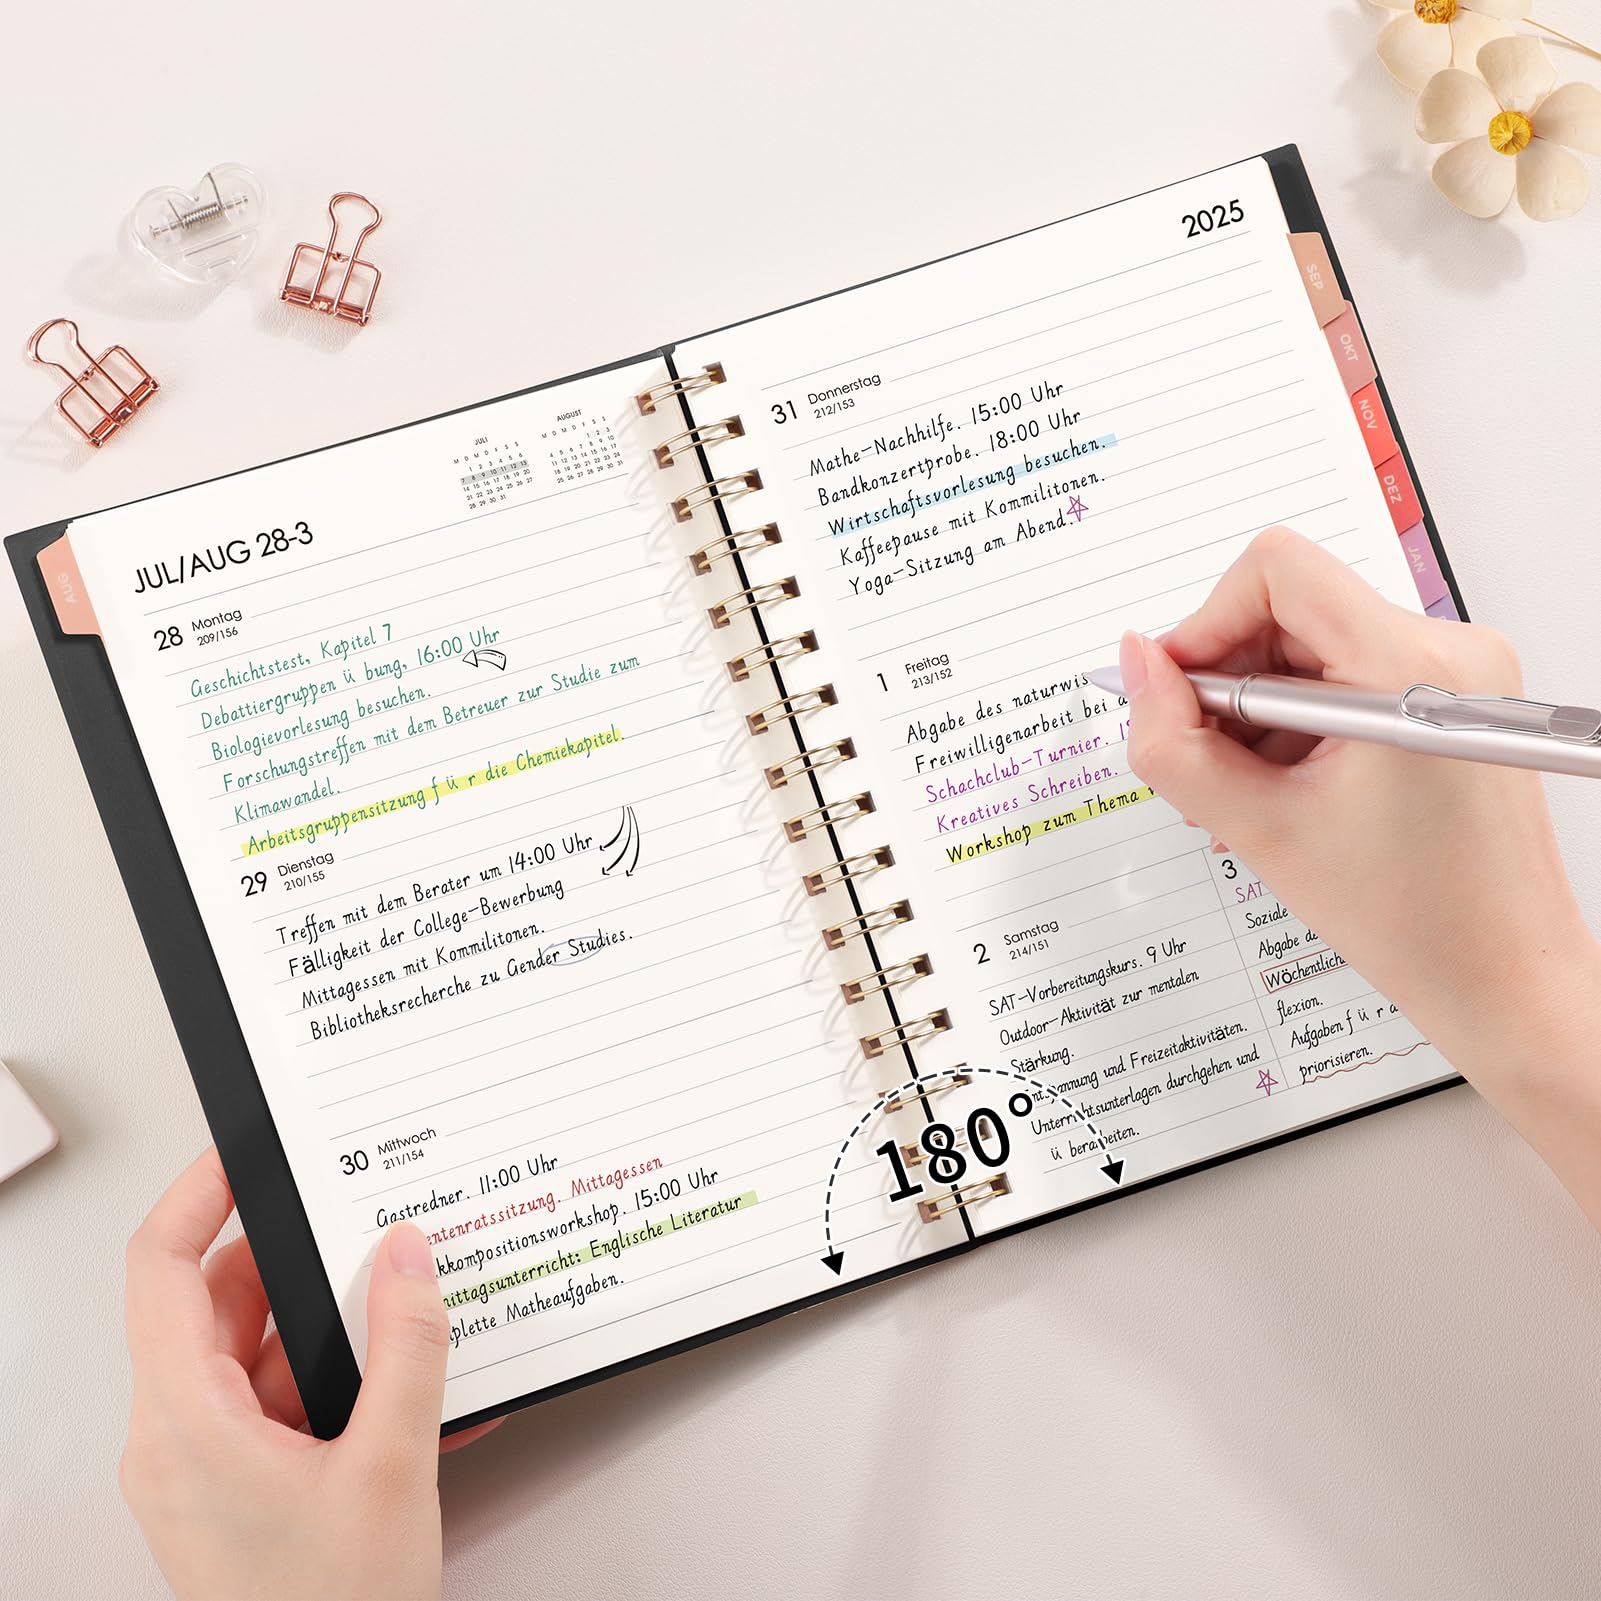 2025
SEP
OKT
NOV
DEZ
JAN
AUG
JUL/AUG 28-3
JULI
M D M D F S S
1 2 3 4 5 6
7 8 9 10 11 12 13
14 15 16 17 18 19 20
21 22 23 24 25 26 27
28 29 30 31
AUGUST
M D M D F S S
1 2 3
4 5 6 7 8 9 10
11 12 13 14 15 16 17
18 19 20 21 22 23 24
25 26 27 28 29 30 31
28 Montag
209/156
Geschichtstest, Kapitel 7
Debattiergruppen ü bung, 16:00 Uhr
Biologievorlesung besuchen.
Forschungstreffen mit dem Betreuer zur Studie zum
Klimawandel.
Arbeitsgruppensitzung f ü r die Chemiekapitel.
29 Dienstag
210/155
Treffen mit dem Berater um 14:00 Uhr
Fälligkeit der College-Bewerbung
Mittagessen mit Kommilitonen.
Bibliotheksrecherche zu Gender Studies.
30 Mittwoch
211/154
Gastredner. 11:00 Uhr
entenratssitzung. Mittagessen
kkompositionsworkshop. 15:00 Uhr
mittagsunterricht: Englische Literatur
plette Matheaufgaben.
31 Donnerstag
212/153
Mathe-Nachhilfe. 15:00 Uhr
Bandkonzertprobe. 18:00 Uhr
Wirtschaftsvorlesung besuchen.
Kaffeepause mit Kommilitonen.
Yoga-Sitzung am Abend.
1 Freitag
213/152
Abgabe des naturwis
Freiwilligenarbeit bei
Schachclub-Turnier.
Kreatives Schreiben.
Workshop zum Thema
2 Samstag
214/151
SAT-Vorbereitungskurs. 9 Uhr
Outdoor-Aktivität zur mentalen
Stärkung.
ntspannung und Freizeitaktivitäten.
Unterrichtsunterlagen durchgehen und
ü berarbeiten.
3
SAT
Soziale
Abgabe de
Wöchentlich
flexion.
Aufgaben f ü r a
priorisieren.
180°